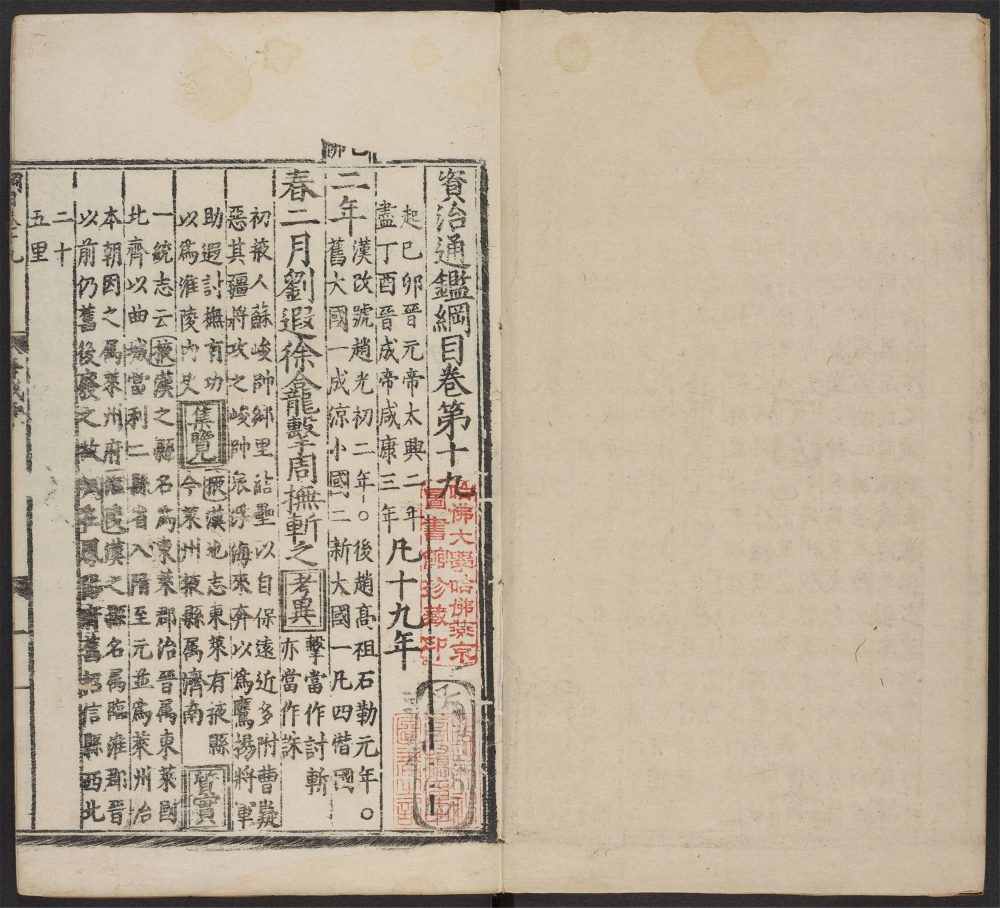 資治通鑑綱目卷第十九
起己卯晉元帝太興二年
盡丁酉晉成帝咸康三年
凡十九年
二年
漢改號趙光初二年○後趙高祖石勒元年○
舊大國一成涼小國二新大國一凡四僭國
春二月劉遐徐龕擊周撫斬之
考異
擊當作討斬
亦當作誅
初掖人蘇峻帥鄉里結壘以自保遠近多附曹嶷
惡其彊將攻之峻帥衆浮海來奔以為鷹揚將軍
助遐討撫有功
以為淮陵內史
集覽
掖漢地志東萊有掖縣
今萊州掖縣属濟南
質實
一統志云掖漢之縣名為東萊郡治晉属東萊國
北齊以曲城當利二縣省入隋至元並為萊州治
本朝因之属萊州府淮陵漢之縣名属臨淮郡晉
以前仍舊後廢之故城在鳳陽府舊招信縣西北
二十
五里
哈佛大學哈佛燕京
圖書館珍藏印